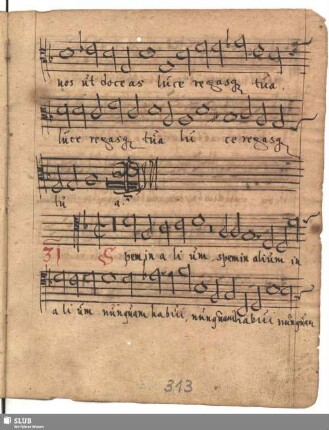 nos ut doceas luce regasq tua.
luce regasq tua lu ce regasq
tu a.
31 Spem in a li um, spem in alium in
a li um nunquam habui, nunquam habui nunquam
313
SLUB
Wir führen Wissen.